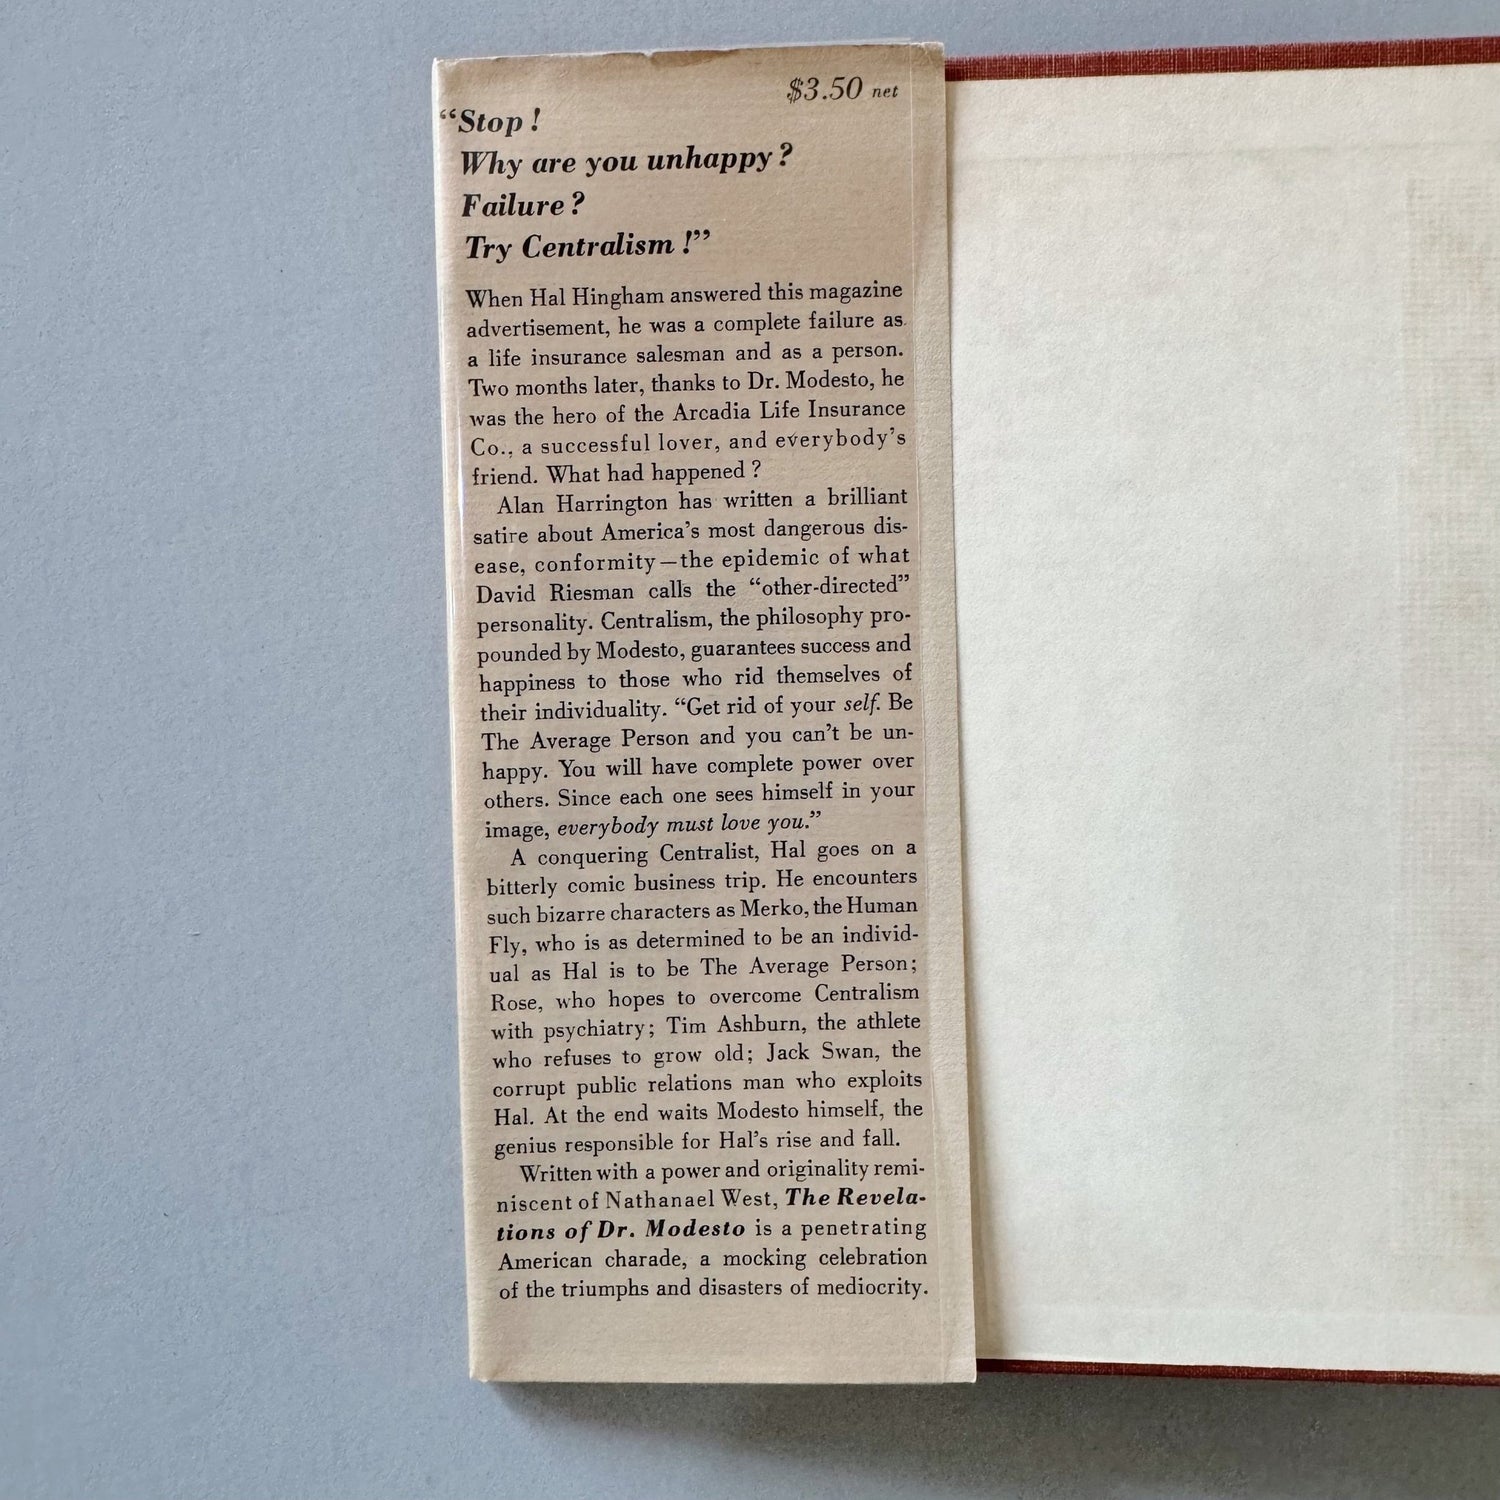 $3.50 net
“Stop!
Why are you unhappy?
Failure?
Try Centralism!”
When Hal Hingham answered this magazine
advertisement, he was a complete failure as
a life insurance salesman and as a person.
Two months later, thanks to Dr. Modesto, he
was the hero of the Arcadia Life Insurance
Co., a successful lover, and everybody’s
friend. What had happened?
Alan Harrington has written a brilliant
satire about America’s most dangerous dis-
ease, conformity—the epidemic of what
David Riesman calls the “other-directed”
personality. Centralism, the philosophy pro-
pounded by Modesto, guarantees success and
happiness to those who rid themselves of
their individuality. “Get rid of your self. Be
The Average Person and you can’t be un-
happy. You will have complete power over
others. Since each one sees himself in your
image, everybody must love you.”
A conquering Centralist, Hal goes on a
bitterly comic business trip. He encounters
such bizarre characters as Merko, the Human
Fly, who is as determined to be an individ-
ual as Hal is to be The Average Person;
Rose, who hopes to overcome Centralism
with psychiatry; Tim Ashburn, the athlete
who refuses to grow old; Jack Swan, the
corrupt public relations man who exploits
Hal. At the end waits Modesto himself, the
genius responsible for Hal’s rise and fall.
Written with a power and originality remi-
niscent of Nathanael West, The Revela-
tions of Dr. Modesto is a penetrating
American charade, a mocking celebration
of the triumphs and disasters of mediocrity.